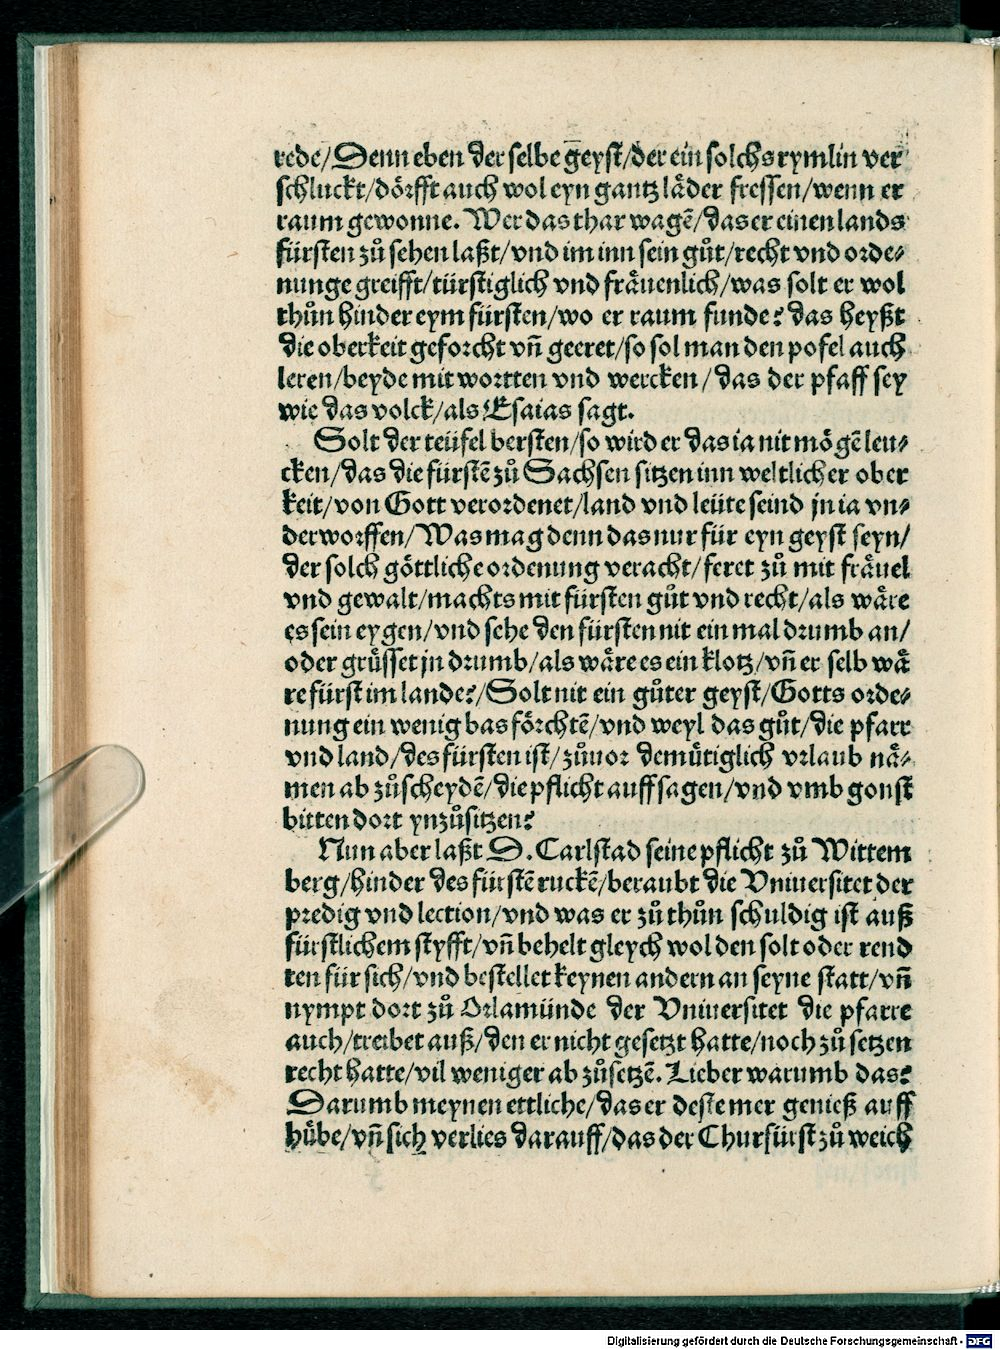 rede/Denn eben der selbe geyst/der ein solchs rymlin ver
schluckt/dörfft auch wol eyn gantz läder fressen/wenn er
raum gewonne. Wer das thar wagē/das er einen lands
fürsten zů sehen laßt/vnd im inn sein gůt/recht vnd orde⸗
nunge greifft/türstiglich vnd fräuenlich/was solt er wol
thůn hinder eym fürsten/wo er raum funde? das heyßt
die oberkeit geforcht vñ geeret/so sol man den pofel auch
leren/beyde mit wortten vnd wercken/das der pfaff sey
wie das volck/als Esaias sagt.
Solt der teüfel bersten/so wird er das ia nit mögē leu⸗
cken/das die fürstē zů Sachsen sitzen inn weltlicher ober
keit/von Gott verordenet/land vnd leüte seind jn ia vn⸗
derworffen/Was mag denn das nur für eyn geyst seyn/
der solch göttliche ordenung veracht/feret zů mit fräuel
vnd gewalt/machts mit fürsten gůt vnd recht/als wäre
es sein eygen/vnd sehe den fürsten nit ein mal drumb an/
oder grüsset jn drumb/als wäre es ein klotz/vñ er selb wä
re fürst im lande?/Solt nit ein gůter geyst/Gotts orde⸗
nung ein wenig bas förchtē/vnd weyl das gůt/die pfarr
vnd land/des fürsten ist/zůuor demütiglich vrlaub nä⸗
men ab zůscheydē/die pflicht auff sagen/vnd vmb gonst
bitten dort ynzůsitzen?
Nun aber laßt D. Carlstad seine pflicht zů Wittem
berg/hinder des fürstē ruckē/beraubt die Vniuersitet der
predig vnd lection/vnd was er zů thůn schuldig ist auß
fürstlichem styfft/vñ behelt gleych wol den solt oder rend
ten für sich/vnd bestellet keynen andern an seyne statt/vñ
nympt dort zů Orlamünde der Vniuersitet die pfarre
auch/treibet auß/den er nicht gesetzt hatte/noch zů setzen
recht hatte/vil weniger ab zůsetzē. Lieber warumb das?
Darumb meynen ettliche/das er deste mer genieß auff
hübe/vñ sich verlies darauff/das der Churfürst zů weich
Digitalisierung gefördert durch die Deutsche Forschungsgemeinschaft - DFG